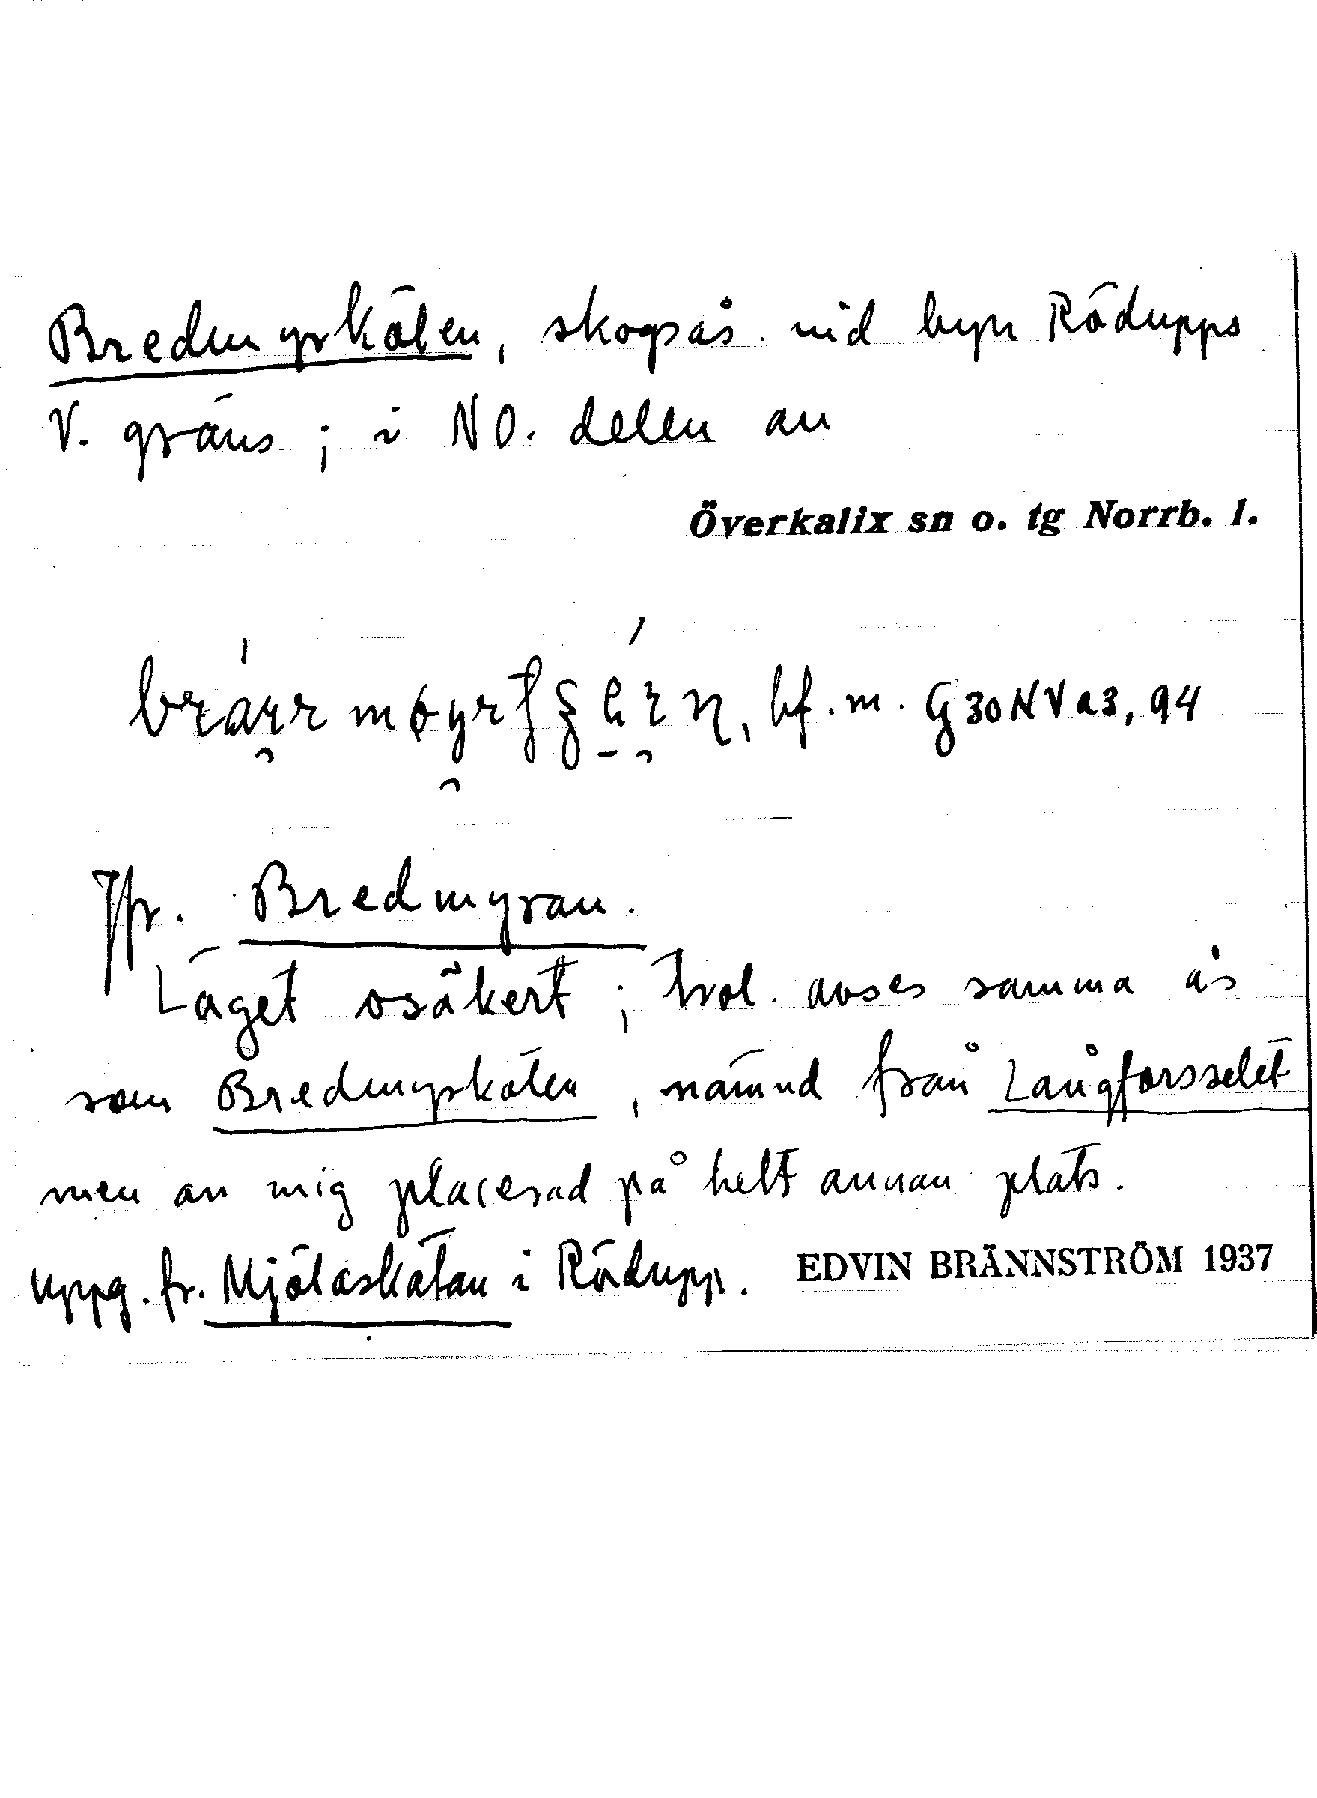 Bredmyrkölen, skogsås vid byn Rödupps
V. gräns; i NO. delen av
Överkalix sn o. tg Norrb. l.
bf. m. G30NVa3, 94
Jfr. Bredmyran.
Läget osäkert; trol. avses samma ås
som Bredmyrkölen, nämnd från Långforsselet
men av mig placerad på helt annan plats.
Uppg. fr. Mjölaskatan i Rödupp. EDVIN BRÄNNSTRÖM 1937